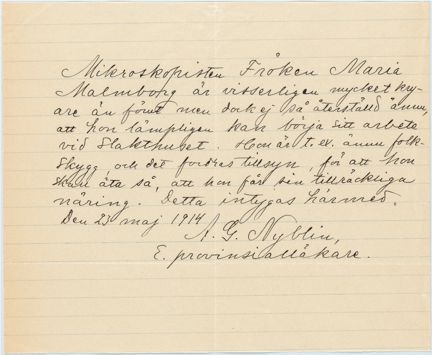 Mikroskopisten Fröken Maria
Malmborg är visserligen mycket kry-
are än förut men dock ej så återställd ännu,
att hon lämpligen kan börja sitt arbete
vid Slakthuset. Hon är t. ex. ännu folk-
skygg, och det fordras tillsyn, för att hon
skall äta så, att hon får sin tillräckliga
näring. Detta intygas härmed.
Den 23 maj 1914
A. G. Nyblin,
E. provinsialläkare.